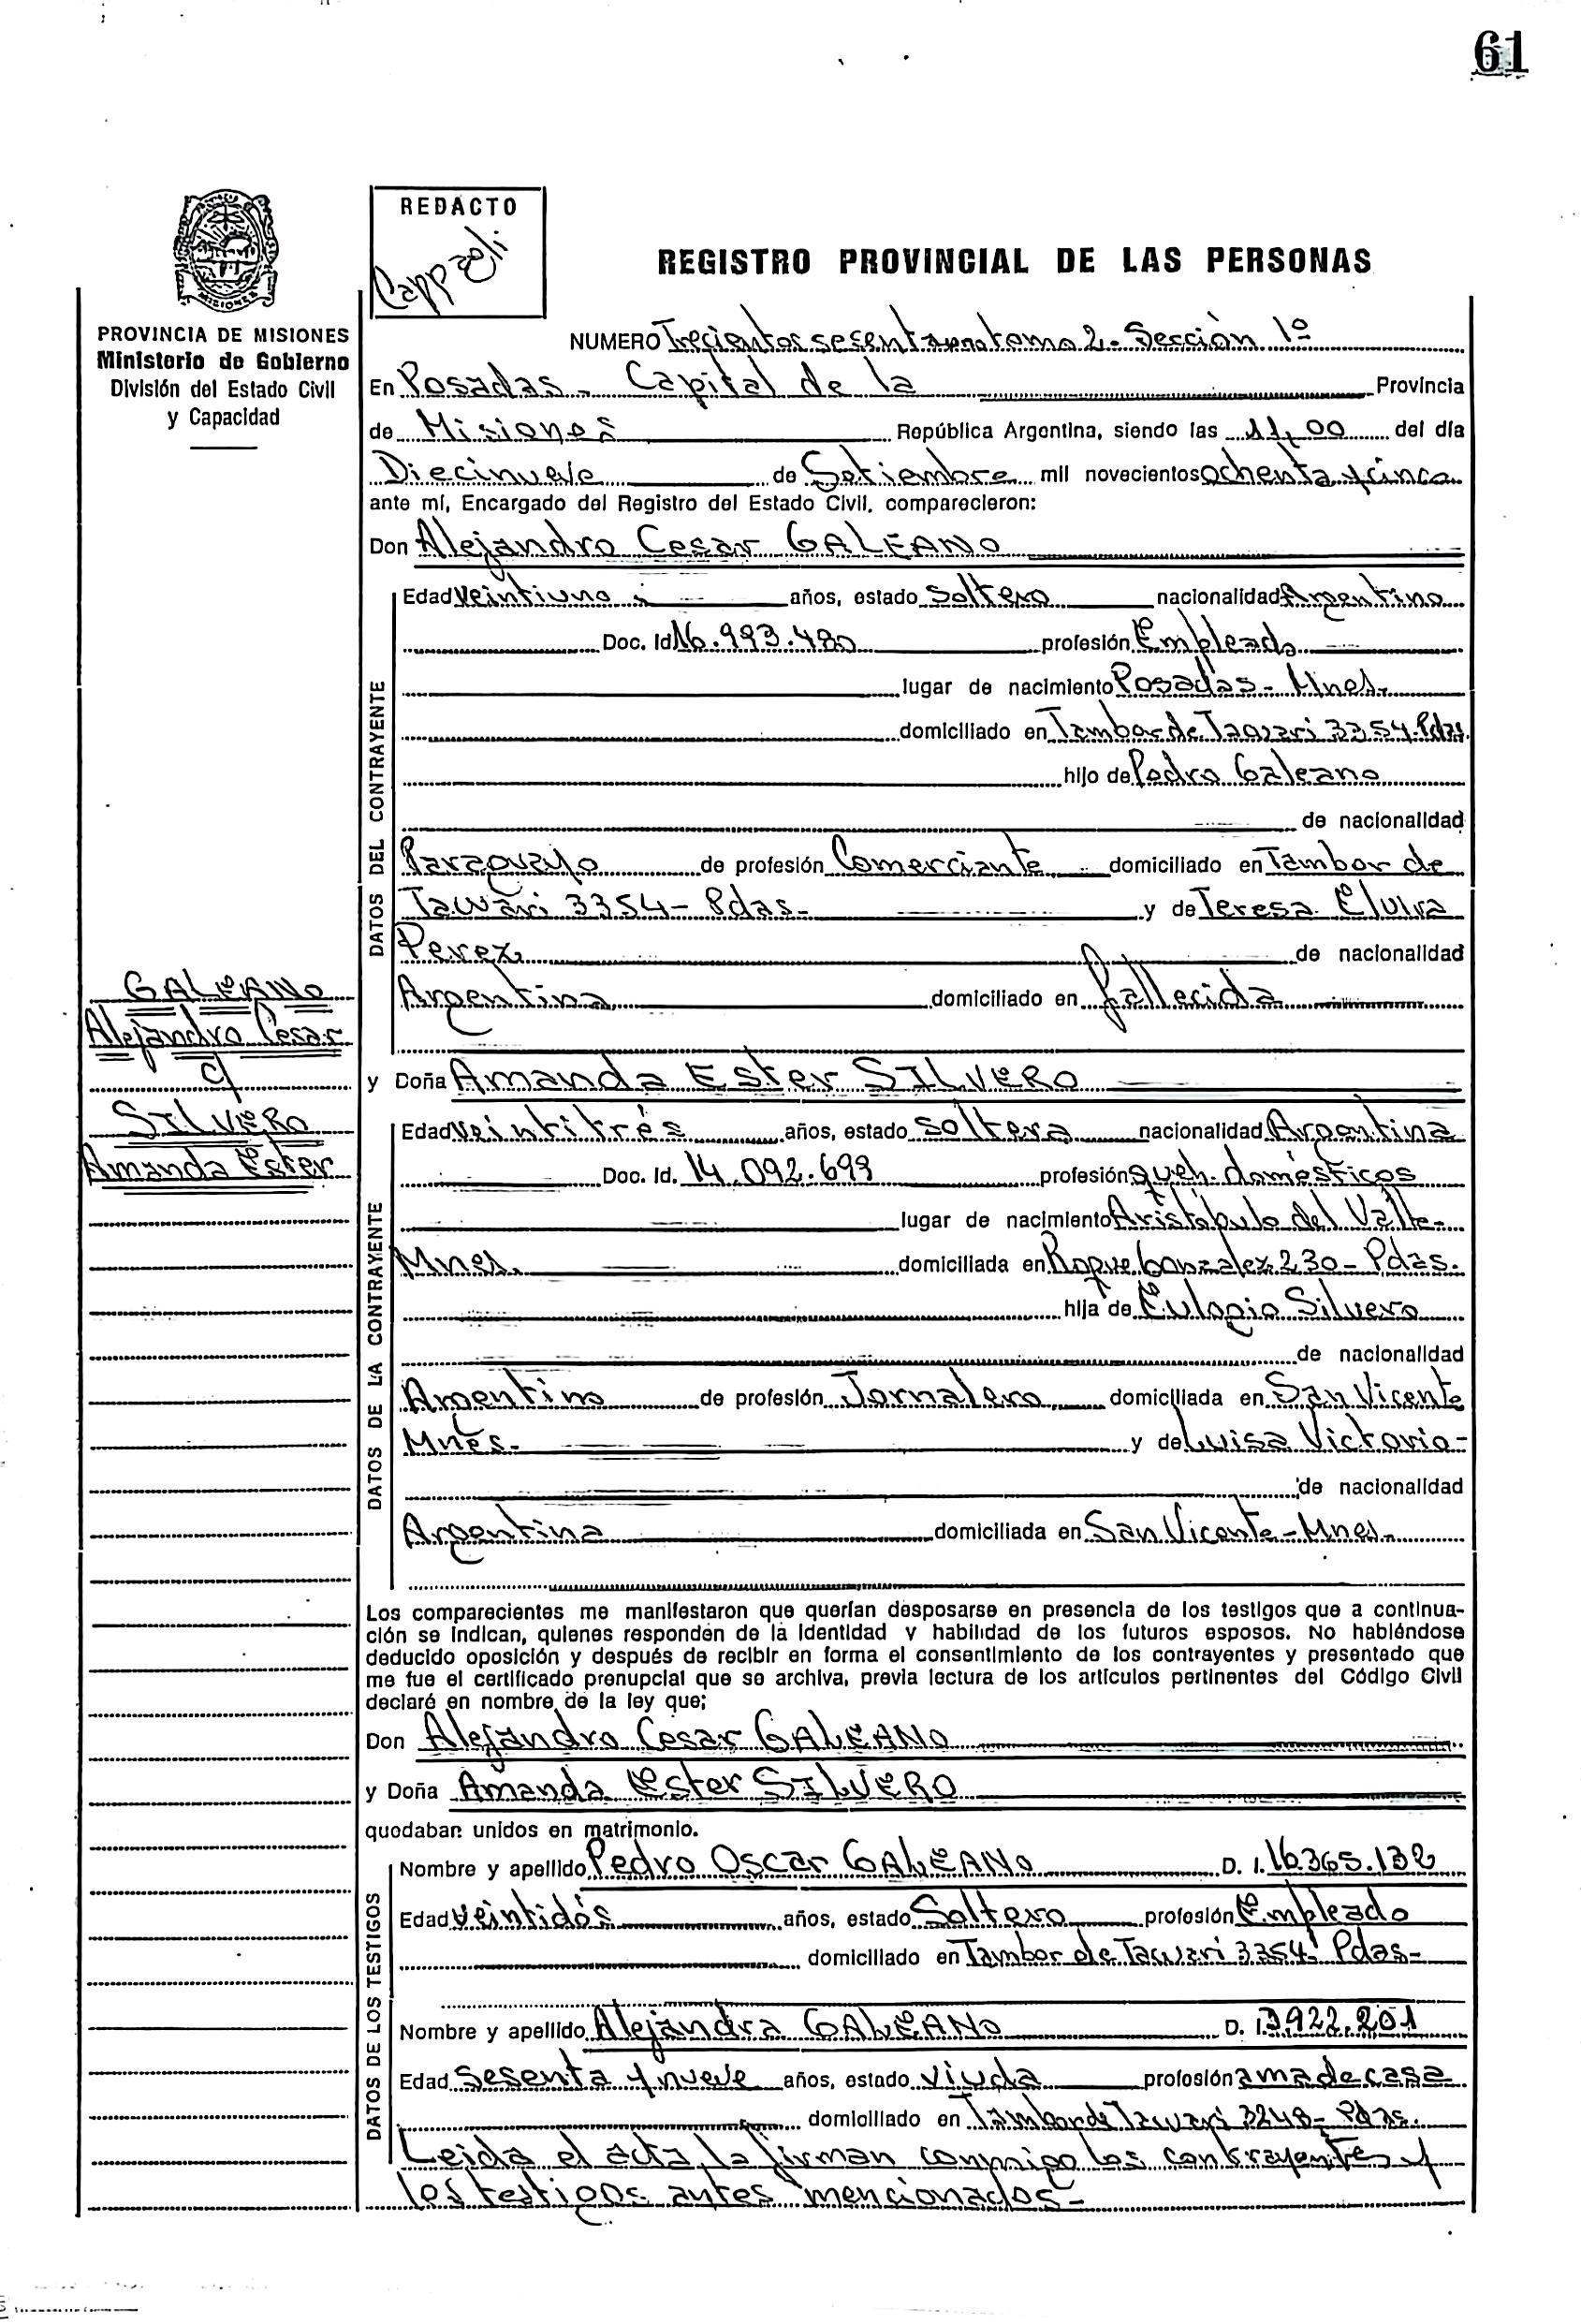 61
REDACTO
Cappaeli
REGISTRO PROVINCIAL DE LAS PERSONAS
MISIONES
PROVINCIA DE MISIONES
Ministerio de Gobierno
División del Estado Civil
y Capacidad
NUMERO Trecientos sesenta uno tomo 2 - Sección 1º
En Posadas - Capital de la Provincia
de Misiones República Argentina, siendo las 11,00 del día
Diecinueve de Setiembre mil novecientos ochenta y cinco
ante mí, Encargado del Registro del Estado Civil, comparecieron:
Don Alejandro Cesar GALEANO
DATOS DEL CONTRAYENTE
Edad veintiuno años, estado soltero nacionalidad Argentino
Doc. Id 16.993.480 profesión Empleado
lugar de nacimiento Posadas - Mnes.
domiciliado en Tambor de Tacuari 3354. Pdas.
hijo de Pedro Galeano
de nacionalidad
Paraguayo de profesión Comerciante domiciliado en Tambor de
Tacuari 3354 - Pdas - y de Teresa Elvira
Perez de nacionalidad
Argentina domiciliado en fallecida
GALEANO
Alejandro Cesar
c/
SILVERO
Amanda Ester
y Doña Amanda Ester SILVERO
DATOS DE LA CONTRAYENTE
Edad veintitrés años, estado soltera nacionalidad Argentina
Doc. Id. 14.092.699 profesión queh. domésticos
lugar de nacimiento Aristóbulo del Valle -
Mnes. domiciliada en Roque Gonzalez 230 - Pdas.
hija de Eulogio Silvero
de nacionalidad
Argentino de profesión Jornalero domiciliada en San Vicente
Mnes - y de Luisa Victoria -
de nacionalidad
Argentina domiciliada en San Vicente - Mnes -
Los comparecientes me manifestaron que querían desposarse en presencia de los testigos que a continua-
ción se indican, quienes responden de la identidad y habilidad de los futuros esposos. No habiéndose
deducido oposición y después de recibir en forma el consentimiento de los contrayentes y presentado que
me fue el certificado prenupcial que se archiva, previa lectura de los artículos pertinentes del Código Civil
declaré en nombre de la ley que;
Don Alejandro Cesar GALEANO
y Doña Amanda Ester SILVERO
quedaban unidos en matrimonio.
DATOS DE LOS TESTIGOS
Nombre y apellido Pedro Oscar GALEANO D. I. 16.365.132
Edad veintidós años, estado Soltero profesión Empleado
domiciliado en Tambor de Tacuari 3354 Pdas -
Nombre y apellido Alejandra GALEANO D. I. 3922.201
Edad sesenta y nueve años, estado viuda profesión ama de casa
domiciliado en Tambor de Tacuari 3248 - Pdas.
Leida el acta la firman conmigo los contrayentes y
los testigos antes mencionados -